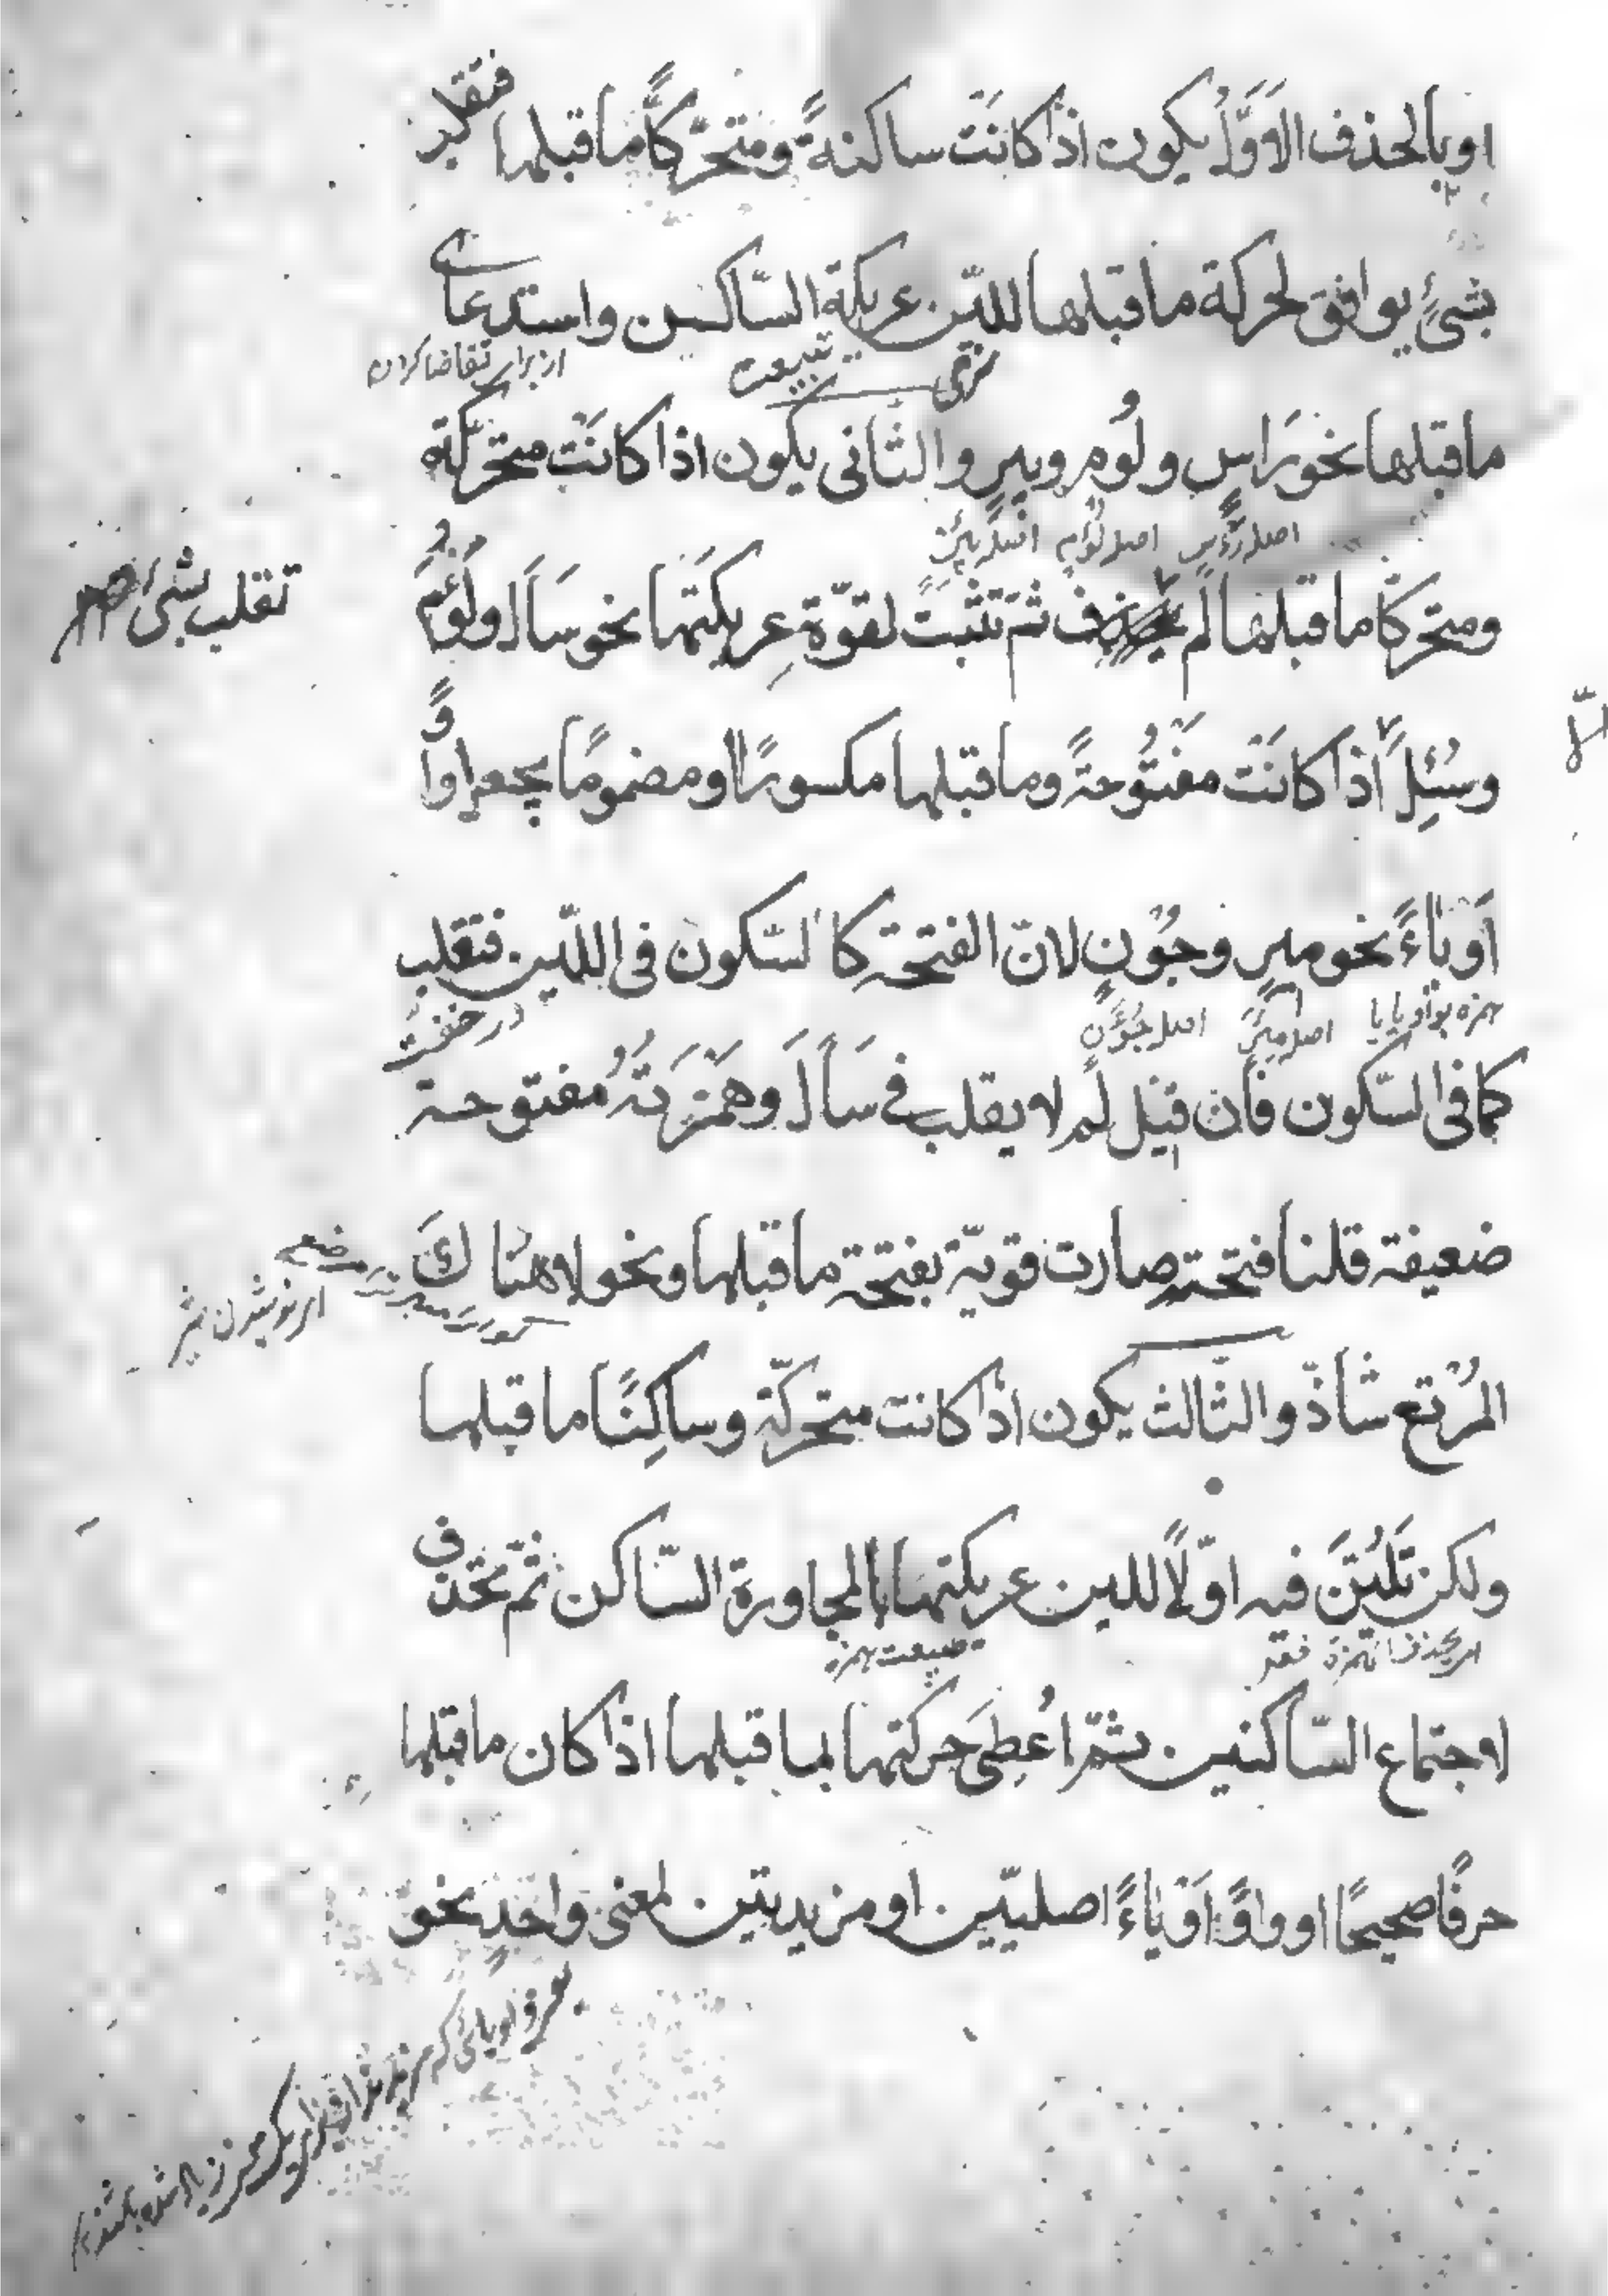 او بالحذف الاَوَّلُ يكون اذا كانَتْ ساكنةً ومتحرّكًا ما قبلها فتقلب
بشئٍ يوافق لحركة ما قبلها للين عريكة السّاكن واستدعاء
نرمى طبيعت از براى تقاضا كردن
ما قبلها نحو رَاسٍ ولُومٍ وبيرٍ والثّانى يكون اذا كانَتْ متحرّكة
اصله رَأْسٍ اصله لُؤْمٍ اصله بِئْرٍ
ومتحركًا ما قبلها لم ثمّ تثبتُ لقوّة عريكتها نحو سَأَلَ ولَؤُمَ
تقلب بشئ
وسُئِلَ اذا كانَتْ مفتُوحةً وما قبلها مكسورًا او مضمومًا يجعل واوًا
اَوْ ياءً نحو ميرٍ وجُوَنٍ لانّ الفتحة كالسّكون فى اللّين فتقلب
همزه بواو يا بيا اصله مِئَرٍ اصله جُؤَنٍ در خفّت
كما فى السّكون فان قيل لِم لا يقلب فى سَأَلَ وهَمْزَتُهُ مفتوحة
ضعيفة قلنا فتحته صارت قويّة بفتحة ما قبلها ونحو لا هناكَ
المرْتع شاذّ والثّالث يكون اذا كانت متحركّة وساكِنًا ما قبلها
ولكن تَلِينَ فيه اوّلًا للين عريكتها بالمجاورة السّاكن ثمّ تحذف
طبيعت همزه
لاجتماع السّاكنين ثمّ اُعطِىَ حركتها بما قبلها اذا كان ما قبلها
حرفًا صحيحًا او واوًا اَوْ ياءً اصليّين او مزيديتين لمعنى واحدٍ نحو